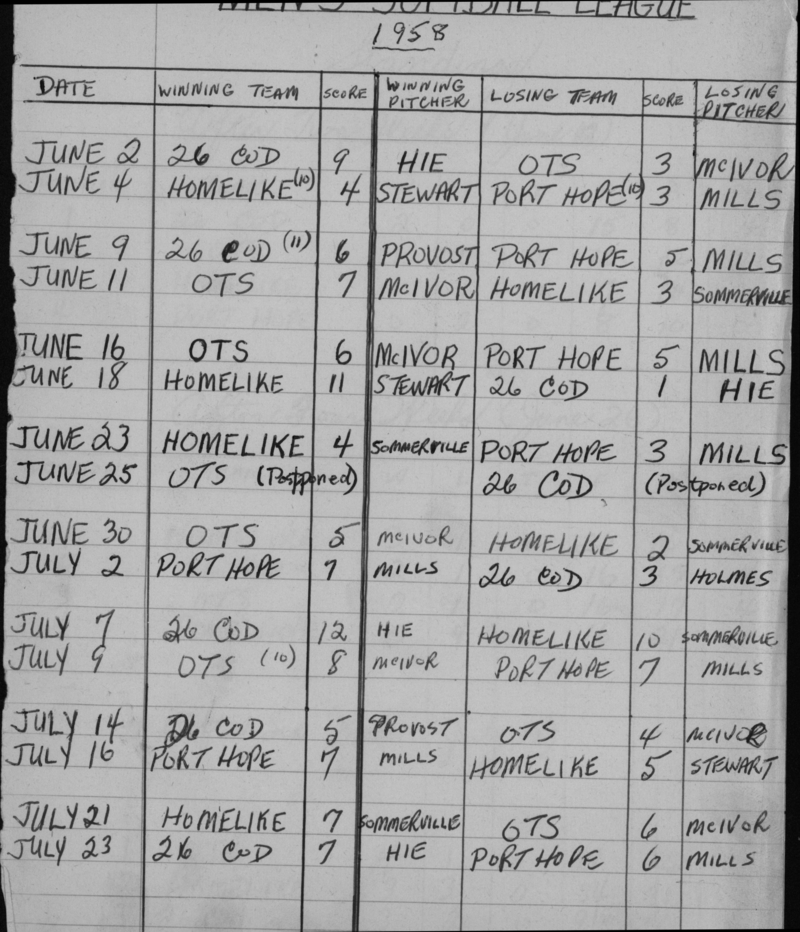 MEN'S SOFTBALL LEAGUE
1958
DATE WINNING TEAM SCORE WINNING PITCHER LOSING TEAM SCORE LOSING PITCHER
JUNE 2 26 COD 9 HIE OTS 3 McIVOR
JUNE 4 HOMELIKE (10) 4 STEWART PORT HOPE (10) 3 MILLS
JUNE 9 26 COD (11) 6 PROVOST PORT HOPE 5 MILLS
JUNE 11 OTS 7 McIVOR HOMELIKE 3 SOMMERVILLE
JUNE 16 OTS 6 McIVOR PORT HOPE 5 MILLS
JUNE 18 HOMELIKE 11 STEWART 26 COD 1 HIE
JUNE 23 HOMELIKE 4 SOMMERVILLE PORT HOPE 3 MILLS
JUNE 25 OTS (Postponed) 26 COD (Postponed)
JUNE 30 OTS 5 McIVOR HOMELIKE 2 SOMMERVILLE
JULY 2 PORT HOPE 7 MILLS 26 COD 3 HOLMES
JULY 7 26 COD 12 HIE HOMELIKE 10 SOMMERVILLE
JULY 9 OTS (10) 8 McIVOR PORT HOPE 7 MILLS
JULY 14 26 COD 5 PROVOST OTS 4 McIVOR
JULY 16 PORT HOPE 7 MILLS HOMELIKE 5 STEWART
JULY 21 HOMELIKE 7 SOMMERVILLE OTS 6 McIVOR
JULY 23 26 COD 7 HIE PORT HOPE 6 MILLS